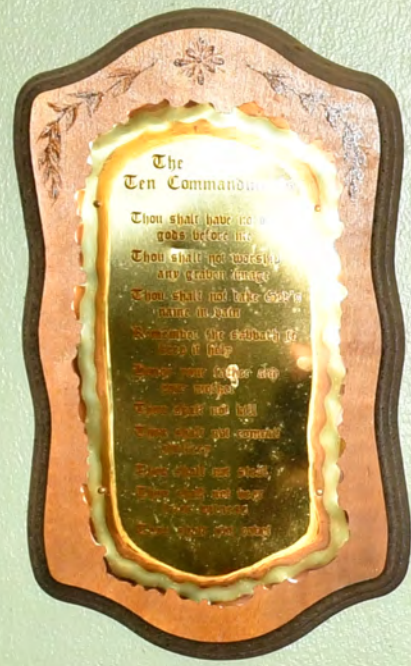 The
Ten Commandments
Thou shalt have no
gods before me
Thou shalt not worship
any graven image
Thou shalt not take God's
name in vain
Remember the Sabbath to
keep it holy
Honor your father and
your mother
Thou shalt not kill
Thou shalt not commit
adultery
Thou shalt not steal
Thou shalt not bear
false witness
Thou shalt not covet